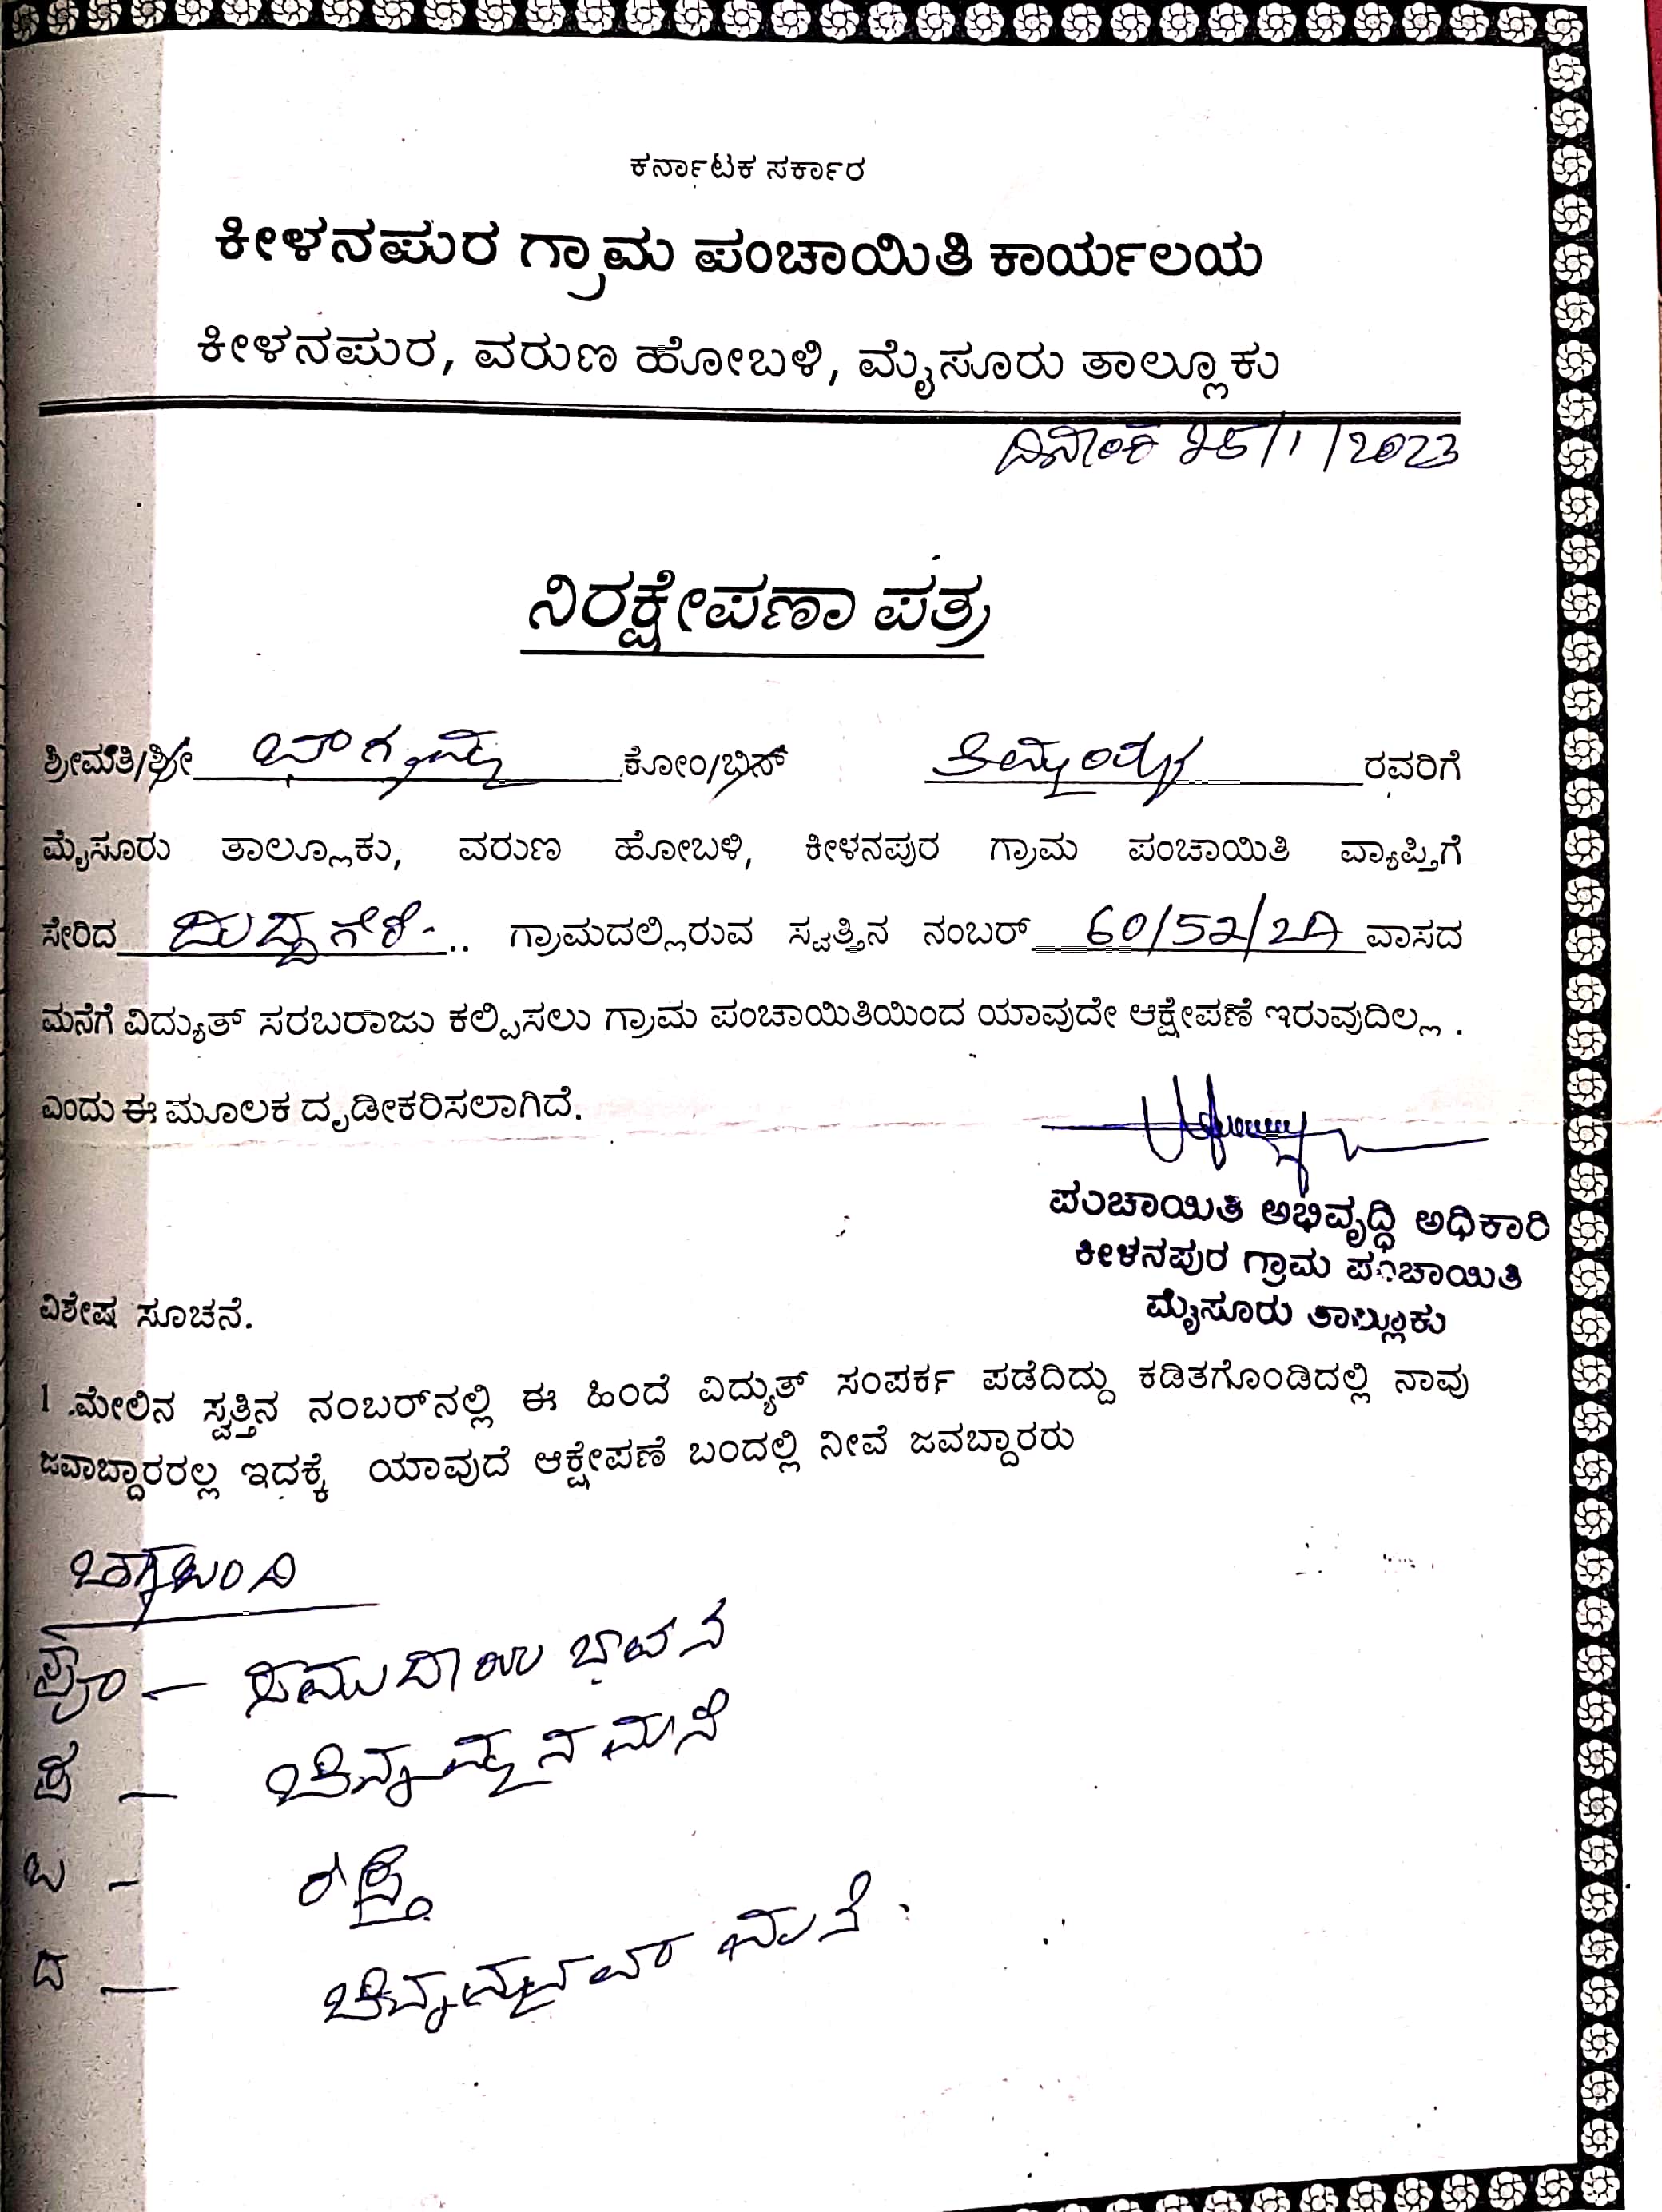 ಕರ್ನಾಟಕ ಸರ್ಕಾರ
ಕೀಳನಪುರ ಗ್ರಾಮ ಪಂಚಾಯಿತಿ ಕಾರ್ಯಲಯ
ಕೀಳನಪುರ, ವರುಣ ಹೋಬಳಿ, ಮೈಸೂರು ತಾಲ್ಲೂಕು
ದಿನಾಂಕ 25/1/2023
ನಿರಕ್ಷೇಪಣಾ ಪತ್ರ
ಶ್ರೀಮತಿ/ಶ್ರೀ ಭಾಗ್ಯಮ್ಮ ಕೋಂ/ಭಿನ್ ತಿಮ್ಮಯ್ಯ ರವರಿಗೆ
ಮೈಸೂರು ತಾಲ್ಲೂಕು, ವರುಣ ಹೋಬಳಿ, ಕೀಳನಪುರ ಗ್ರಾಮ ಪಂಚಾಯಿತಿ ವ್ಯಾಪ್ತಿಗೆ
ಸೇರಿದ ದುದ್ದಗೆರೆ .. ಗ್ರಾಮದಲ್ಲಿರುವ ಸ್ವತ್ತಿನ ನಂಬರ್ 60/52/2A ವಾಸದ
ಮನೆಗೆ ವಿದ್ಯುತ್ ಸರಬರಾಜು ಕಲ್ಪಿಸಲು ಗ್ರಾಮ ಪಂಚಾಯಿತಿಯಿಂದ ಯಾವುದೇ ಆಕ್ಷೇಪಣೆ ಇರುವುದಿಲ್ಲ .
ಎಂದು ಈ ಮೂಲಕ ದೃಡೀಕರಿಸಲಾಗಿದೆ.
ಪಂಚಾಯಿತಿ ಅಭಿವೃದ್ಧಿ ಅಧಿಕಾರಿ
ಕೀಳನಪುರ ಗ್ರಾಮ ಪಂಚಾಯಿತಿ
ಮೈಸೂರು ತಾಲ್ಲೂಕು
ವಿಶೇಷ ಸೂಚನೆ.
1 .ಮೇಲಿನ ಸ್ವತ್ತಿನ ನಂಬರ್‌ನಲ್ಲಿ ಈ ಹಿಂದೆ ವಿದ್ಯುತ್ ಸಂಪರ್ಕ ಪಡೆದಿದ್ದು ಕಡಿತಗೊಂಡಿದಲ್ಲಿ ನಾವು
ಜವಾಬ್ದಾರರಲ್ಲ ಇದಕ್ಕೆ ಯಾವುದೆ ಆಕ್ಷೇಪಣೆ ಬಂದಲ್ಲಿ ನೀವೆ ಜವಬ್ದಾರರು
ಚಕ್ಕುಬಂದಿ
ಪೂ - ಸಮುದಾಯ ಭಾವನ
ಪ - ಚಿನ್ನಮ್ಮನ ಮನೆ
ಉ - ರಸ್ತೆ
ದ - ಮನೆ